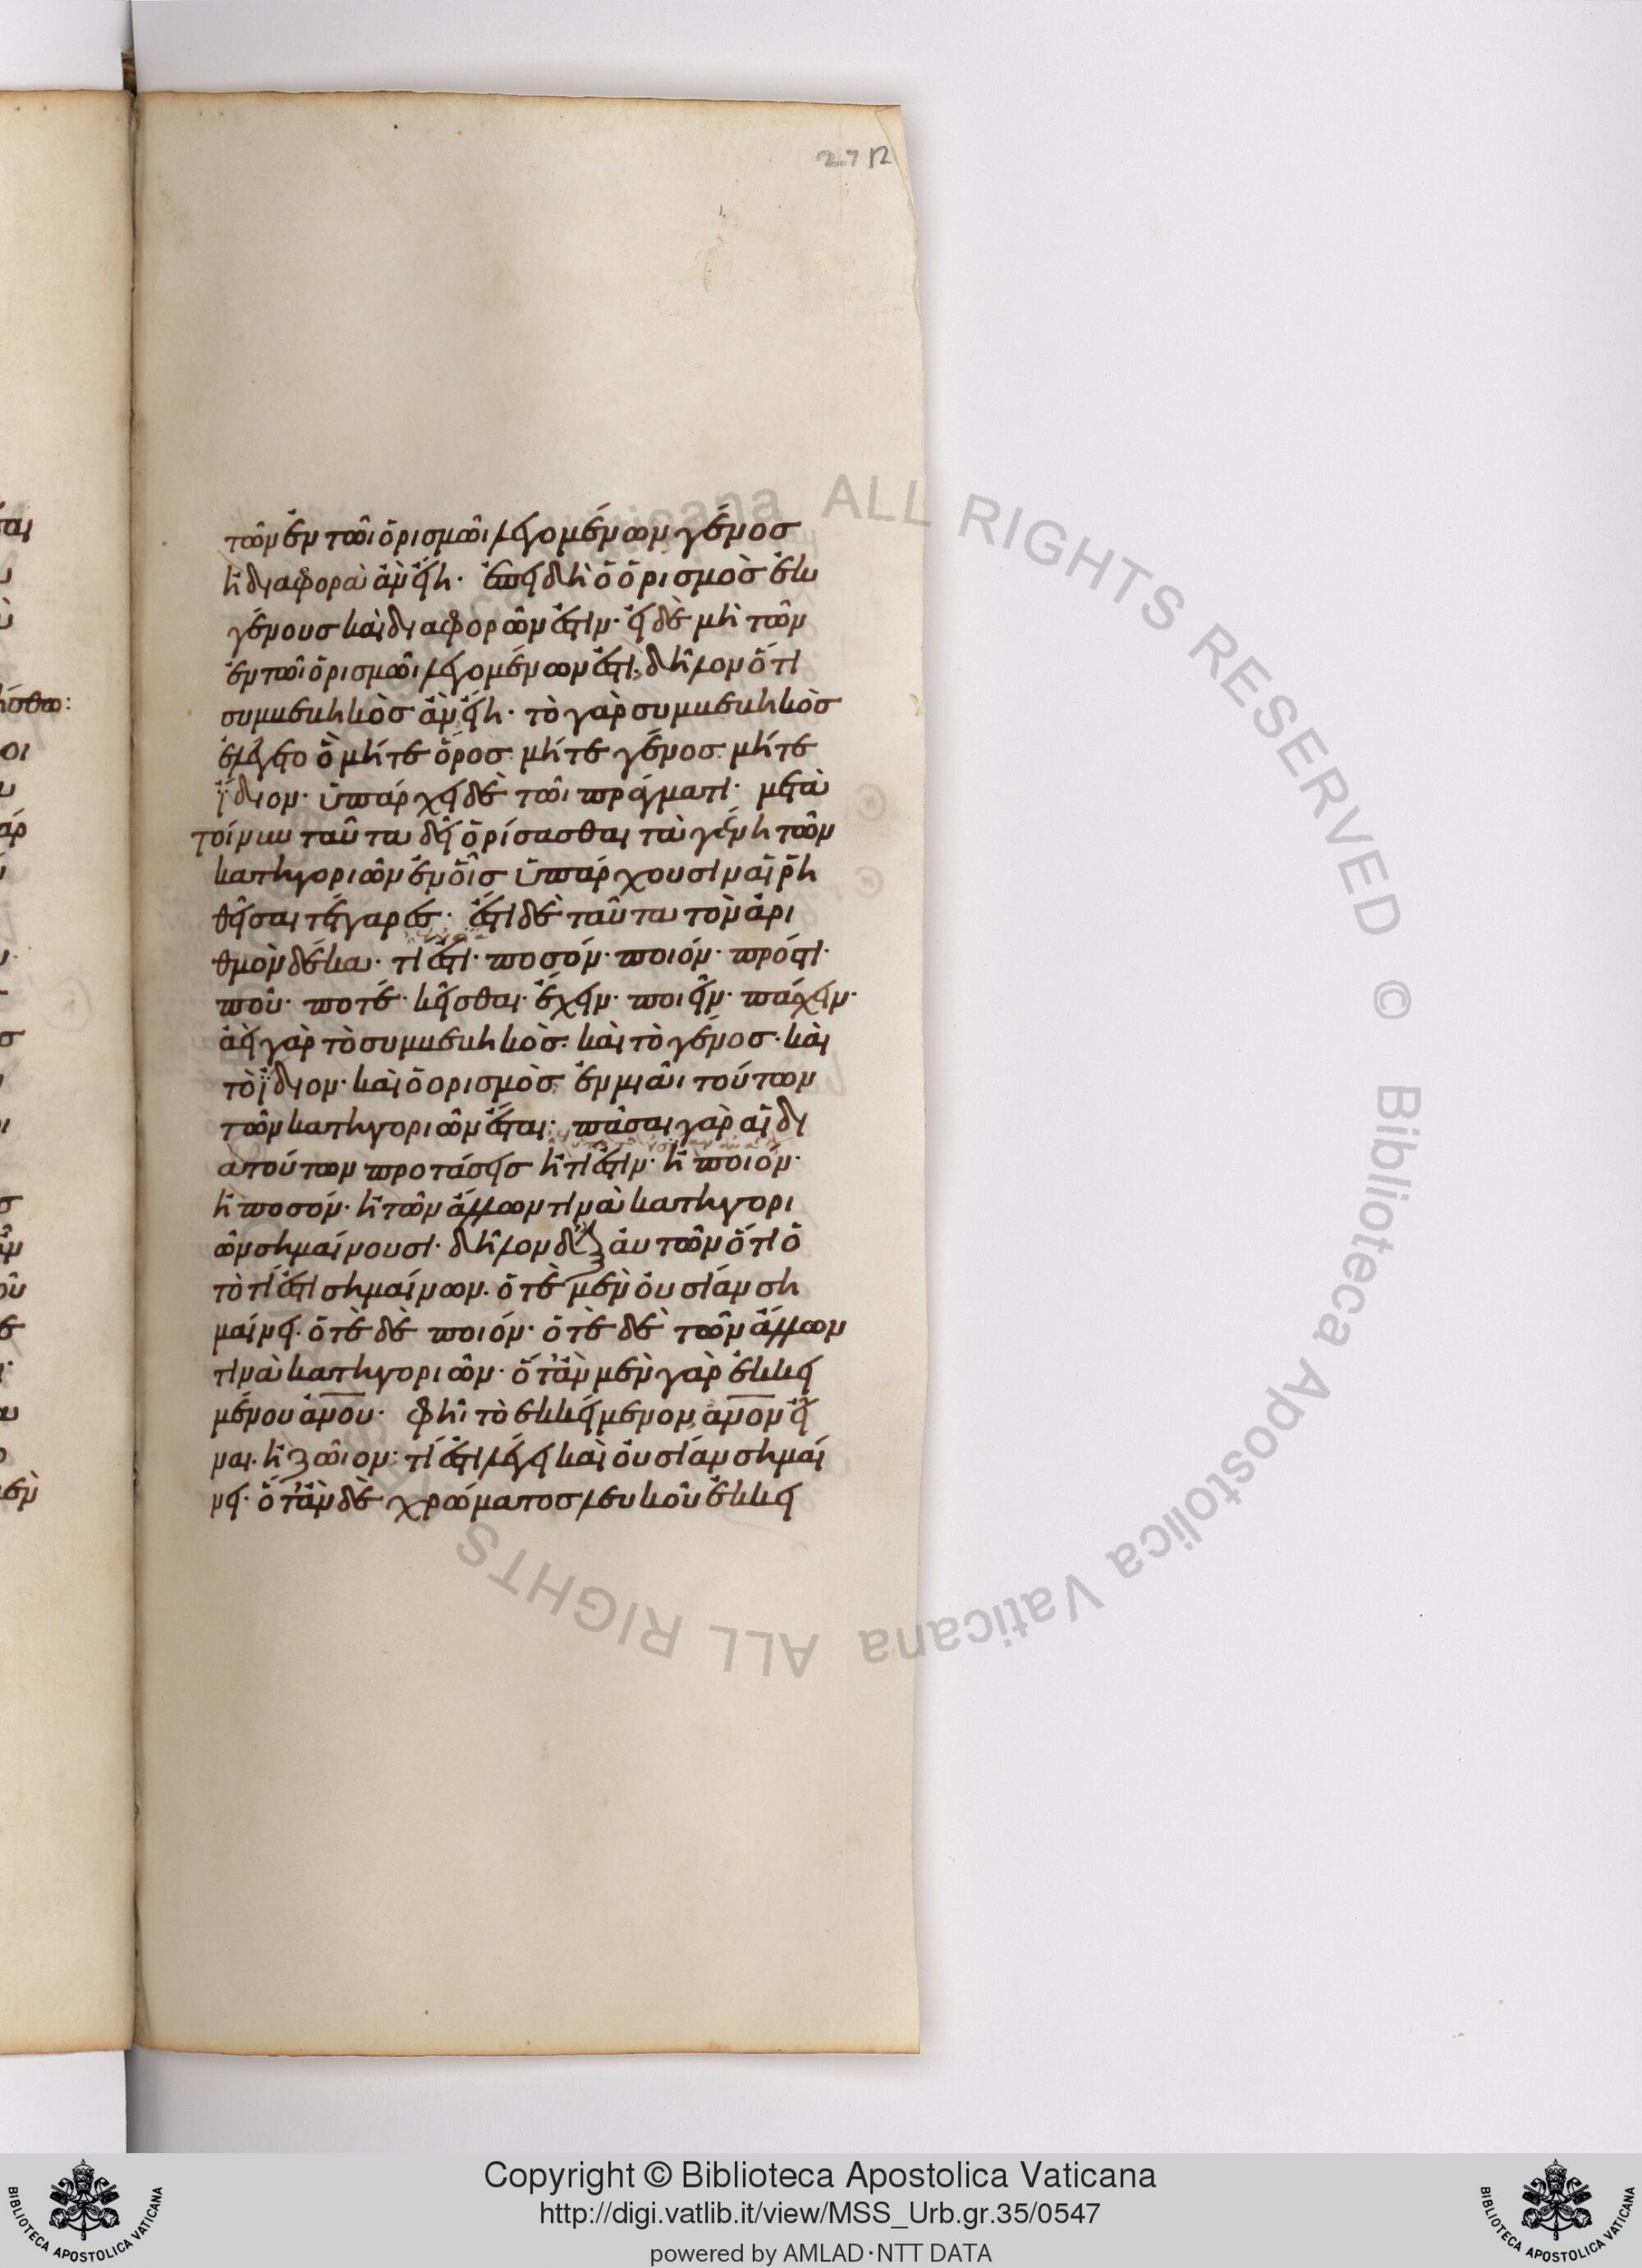 272
τῶν ἐν τῶι ὁρισμῶι λεγομένων γένος
ἢ διαφορὰ ἂν εἴη· ἐπειδὴ ὁ ὁρισμὸς ἐκ
γένους καὶ διαφορῶν ἐστιν· εἰ δὲ μὴ τῶν
ἐν τῶι ὁρισμῶι λεγομένων ἐστί, δῆλον ὅτι
συμβεβηκὸς ἂν εἴη· τὸ γὰρ συμβεβηκὸς
ἐλέγετο ὃ μήτε ὅρος μήτε γένος μήτε
ἴδιον· ὑπάρχει δὲ τῶι πράγματι· μετὰ
τοίνυν ταῦτα δεῖ ὁρίσασθαι τὰ γένη τῶν
κατηγοριῶν ἐν οἷς ὑπάρχουσιν αἱ ῥη
θεῖσαι τέτταρες· ἔστι δὲ ταῦτα τὸν ἀρι
θμὸν δέκα· τί ἐστι· ποσόν· ποιόν· πρός τι·
ποῦ· ποτέ· κεῖσθαι· ἔχειν· ποιεῖν· πάσχειν·
ἀεὶ γὰρ τὸ συμβεβηκὸς· καὶ τὸ γένος· καὶ
τὸ ἴδιον· καὶ ὁ ορισμὸς ἐν μιᾶι τούτων
τῶν κατηγοριῶν ἔσται· πᾶσαι γὰρ αἱ δι
α τούτων προτάσεις ἢ τί ἐστιν· ἢ ποιόν·
ἢ ποσόν· ἢ τῶν ἄλλων τινὰ κατηγορι
ῶν σημαίνουσι· δῆλον δὲ ἐξ αὐτῶν ὅτι ὁ
τὸ τί ἐστι σημαίνων· ὁτὲ μὲν οὐσίαν ση
μαίνει· ὁτὲ δὲ ποιόν· ὁτὲ δὲ τῶν ἄλλων
τινὰ κατηγοριῶν· ὅταν μὲν γὰρ ἐκκει
μένου ανου· φῆι τὸ εκκείμενον ανον εἶ
ναι· ἢ ζῶιον· τί ἐστι λέγει καὶ οὐσίαν σημαί
νει· ὅταν δὲ χρώματος λευκοῦ ἐκκει
Copyright © Biblioteca Apostolica Vaticana
http://digi.vatlib.it/view/MSS_Urb.gr.35/0547
powered by AMLAD·NTT DATA
BIBLIOTECA APOSTOLICA VATICANA
BIBLIOTECA APOSTOLICA VATICANA
ALL RIGHTS RESERVED © Biblioteca Apostolica Vaticana ALL RIGHTS RESERVED